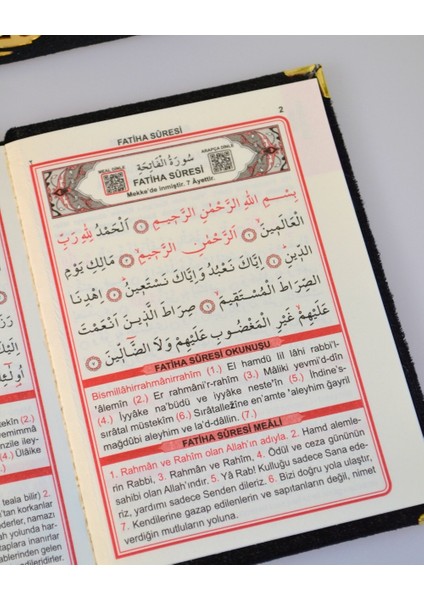 2
FATİHA SÛRESİ
MEAL DİNLE
سُورَةُ الْفَاتِحَةِ
ARAPÇA DİNLE
FATİHA SÛRESİ
Mekke'de inmiştir. 7 Âyettir.
بِسْمِ اللّٰهِ الرَّحْمٰنِ الرَّحٖيمِ ﴿١﴾ اَلْحَمْدُ لِلّٰهِ رَبِّ
الْعَالَمٖينَۙ ﴿٢﴾ اَلرَّحْمٰنِ الرَّحٖيمِۙ ﴿٣﴾ مَالِكِ يَوْمِ
الدّٖينِۜ ﴿٤﴾ اِيَّاكَ نَعْبُدُ وَاِيَّاكَ نَسْتَعٖينُۜ ﴿٥﴾ اِهْدِنَا
الصِّرَاطَ الْمُسْتَقٖيمَۙ ﴿٦﴾ صِرَاطَ الَّذٖينَ اَنْعَمْتَ
عَلَيْهِمْۙ غَيْرِ الْمَغْضُوبِ عَلَيْهِمْ وَلَا الضَّٓالّٖينَ ﴿٧﴾
FATİHA SÛRESİ OKUNUŞU
Bismillâhirrahmânirrahîm (1.) El hamdü lil lâhi rabbi'l-
'âlemîn (2.) Er rahmâni'r-rahîm (3.) Mâliki yevmi'd-dîn
(4.) İyyâke na'büdü ve iyyâke neste'în (5.) İhdine's-
sırâtal müstekîm (6.) Sırâtallezîne en'amte 'aleyhim ğayril
mağdûbi aleyhim ve la'd-dâllîn. (7.)
FATİHA SÛRESİ MEÂLİ
1. Rahmân ve Rahîm olan Allah'ın adıyla. 2. Hamd alemle-
rin Rabbi, 3. Rahmân ve Rahîm, 4. Ödül ve ceza gününün
sahibi olan Allah'ındır. 5. Yâ Rab! Kulluğu sadece Sana ede-
riz, yardımı sadece Senden dileriz. 6. Bizi doğru yola ulaştır,
7. Kendilerine gazap edilenlerin ve sapıtanların değil, nimet
verdiğin mutluların yoluna.